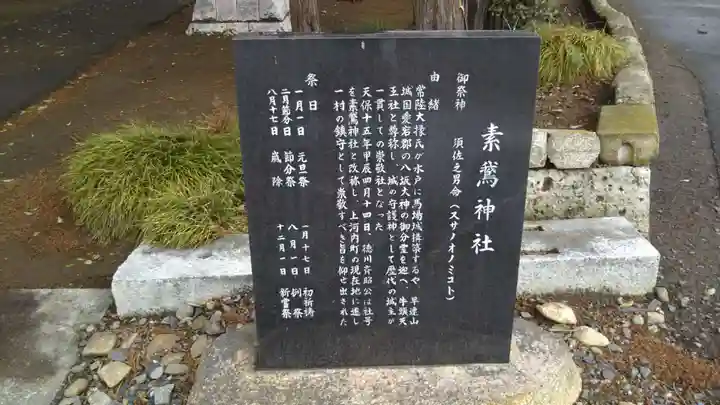 素鵞神社
御祭神 須佐之男命(スサノオノミコト)
由緒
常陸大掾氏が水戸に馬場城構築するや、早速山
城国愛宕郡の八坂大神の御分霊を迎へ、牛頭天
王社と尊称し、城の守護神として歴代の城主が
一貫しての崇敬社となった
天保十五年甲辰四月十四日、徳川斉昭公は社号
を素鵞神社と改称し、上河内町の現在地に遷し
一村の鎮守として崇敬すべき旨を仰せ出された
祭日
一月一日 元旦祭
二月節分日 節分祭
八月十七日 歳除
一月十七日 初祈祷
八月一日 例祭
十二月一日 新嘗祭